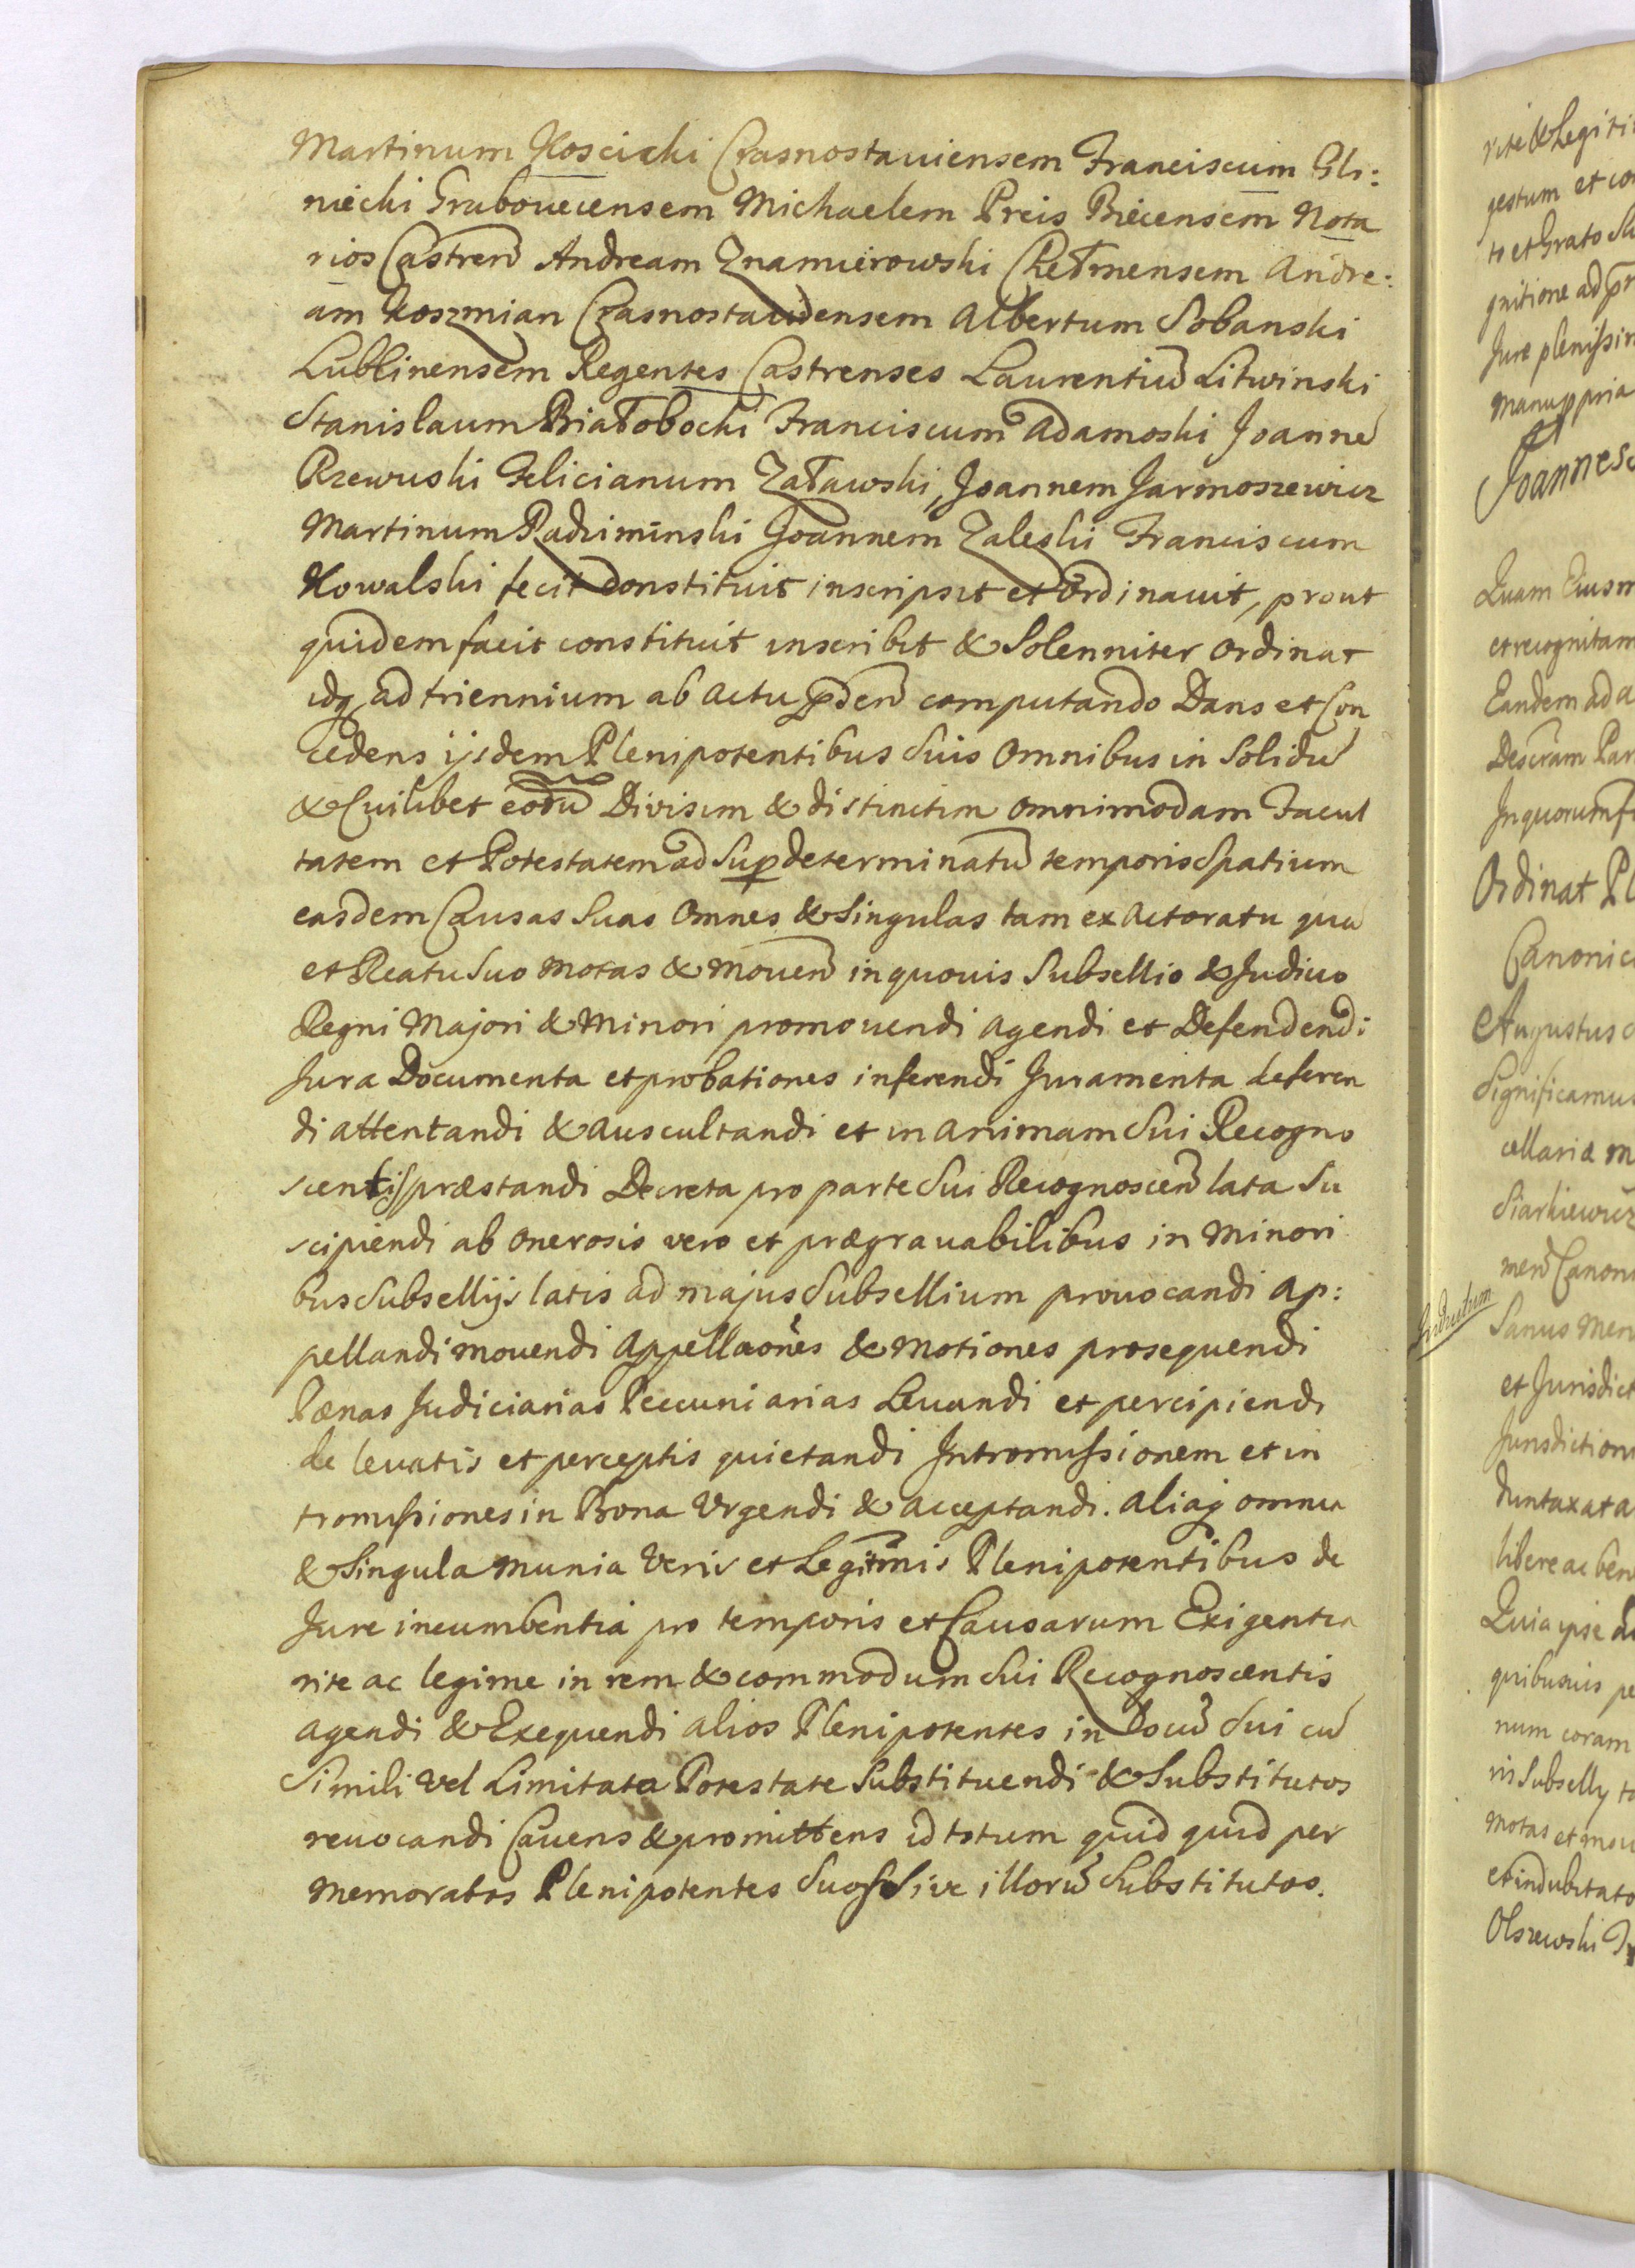 Martinum Koscicki Crasnostauiensem Franciscum Gli:
niecki Grabouecensem Michaelem Preis Biecensem Nota
rios Castren̄ Andream Znamierowski Chełmensem Andre:
am Koszmian Crasnostauiensem Albertum Sobanski
Lublinensem Regentes Castrenses Laurentiū Litwinski
Stanislaum Białobocki Franciscum Adamoski Joannē
Rzewuski Felicianum Załawski, Joannem Jarmoszewicz
Martinum Radziminski Joannem Zaleski Franciscum
Kowalski fecit constituit inscripsit et Ordinauit, prout
quidem facit constituit inscribit & Solenniter Ordinat
idq ad triennium ab actu pn̄den̄ computando Dans et Con
cedens ijsdem Plenipotentibus Suis Omnibus in Solidū
& Cuilibet eorū Divisim & distinctim omnimodam Facul
tatem et Potestatem ad Sup determinatū temporis Spatium
easdem Causas Suas Omnes & Singulas tam ex Actoratu quā
et Reatu Suo motas & mouen̄ in quouis Subsellio & Judicio
Regni Majori & Minori promouendi agendi et Defendendi
Jura Documenta et probationes inferendi Juramenta deferen
di attentandi & auscultandi et in animam Sui Recogno
scentis præstandi Decreta pro parte Sui Recognoscen̄ lata Su
scipiendi ab Onerosis vero et prægrauabilibus in Minori
bus Subsellijs latis ad majus Subsellium prouocandi ap:
pellandi mouendi Appellaōnes & motiones prosequendi
Pænas Judiciarias Pecuniarias Leuandi et percipiendi
de leuatis et perceptis quietandi Intromissionem et in
tromissiones in Bona Urgendi & acceptandi. aliaq omnia
& Singula munia Veris et Legitimis Plenipotentibus de
Jure incumbentia pro temporis et Causarum Exigentia
rite ac legime in rem & commodum Sui Recognoscentis
agendi & Exequendi alios Plenipotentes in Locū Sui cū
Simili vel Limitata Potestate Substituendi & Substitutos
reuocandi Cauens & promittens id totum quid quid per
memoratos Plenipotentes Suos Sive illorū Substitutos.
rite & Legiti
gestum et con
to et Grato
gnitione ad
Jure plenissim
Manu ppria
Joannes
Quam Eius
et recognitam
Eandem ad a
Descram Par
In quorum f
Ordinat Pl
Canonic
Augustus
Significamus
cellariæ m
Siarkiewicz
men̄ Canoni
Sanus Men
et Jurisdict
Jurisdictioni
duntaxat a
libere ac ben
Quia ipse
quibusuis pe
num coram
in Subselly
motas et mou
et indubitato
Olszewski